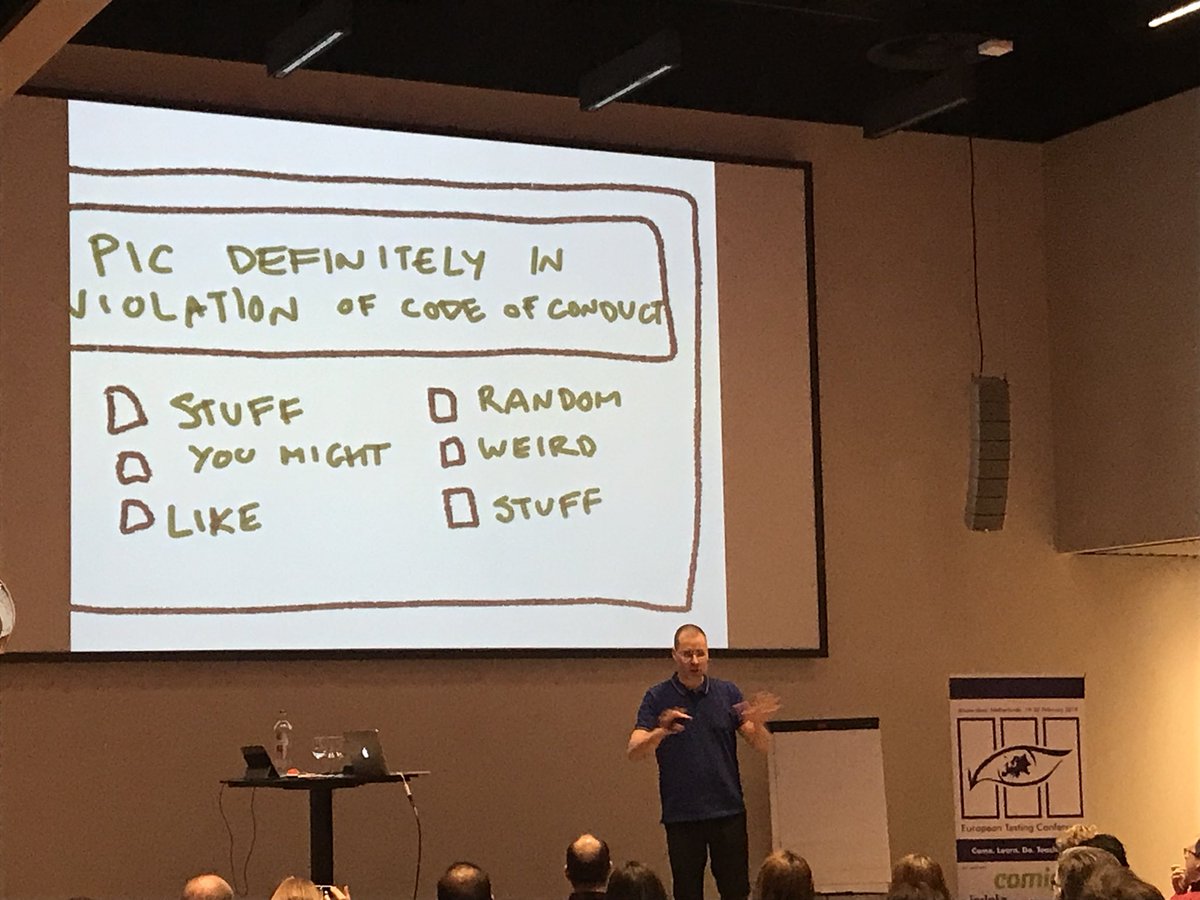 PIC DEFINITELY IN
VIOLATION OF CODE OF CONDUCT
STUFF
YOU MIGHT
LIKE
RANDOM
WEIRD
STUFF
European Testing Conference
Come. Learn. Do. Teach
comi